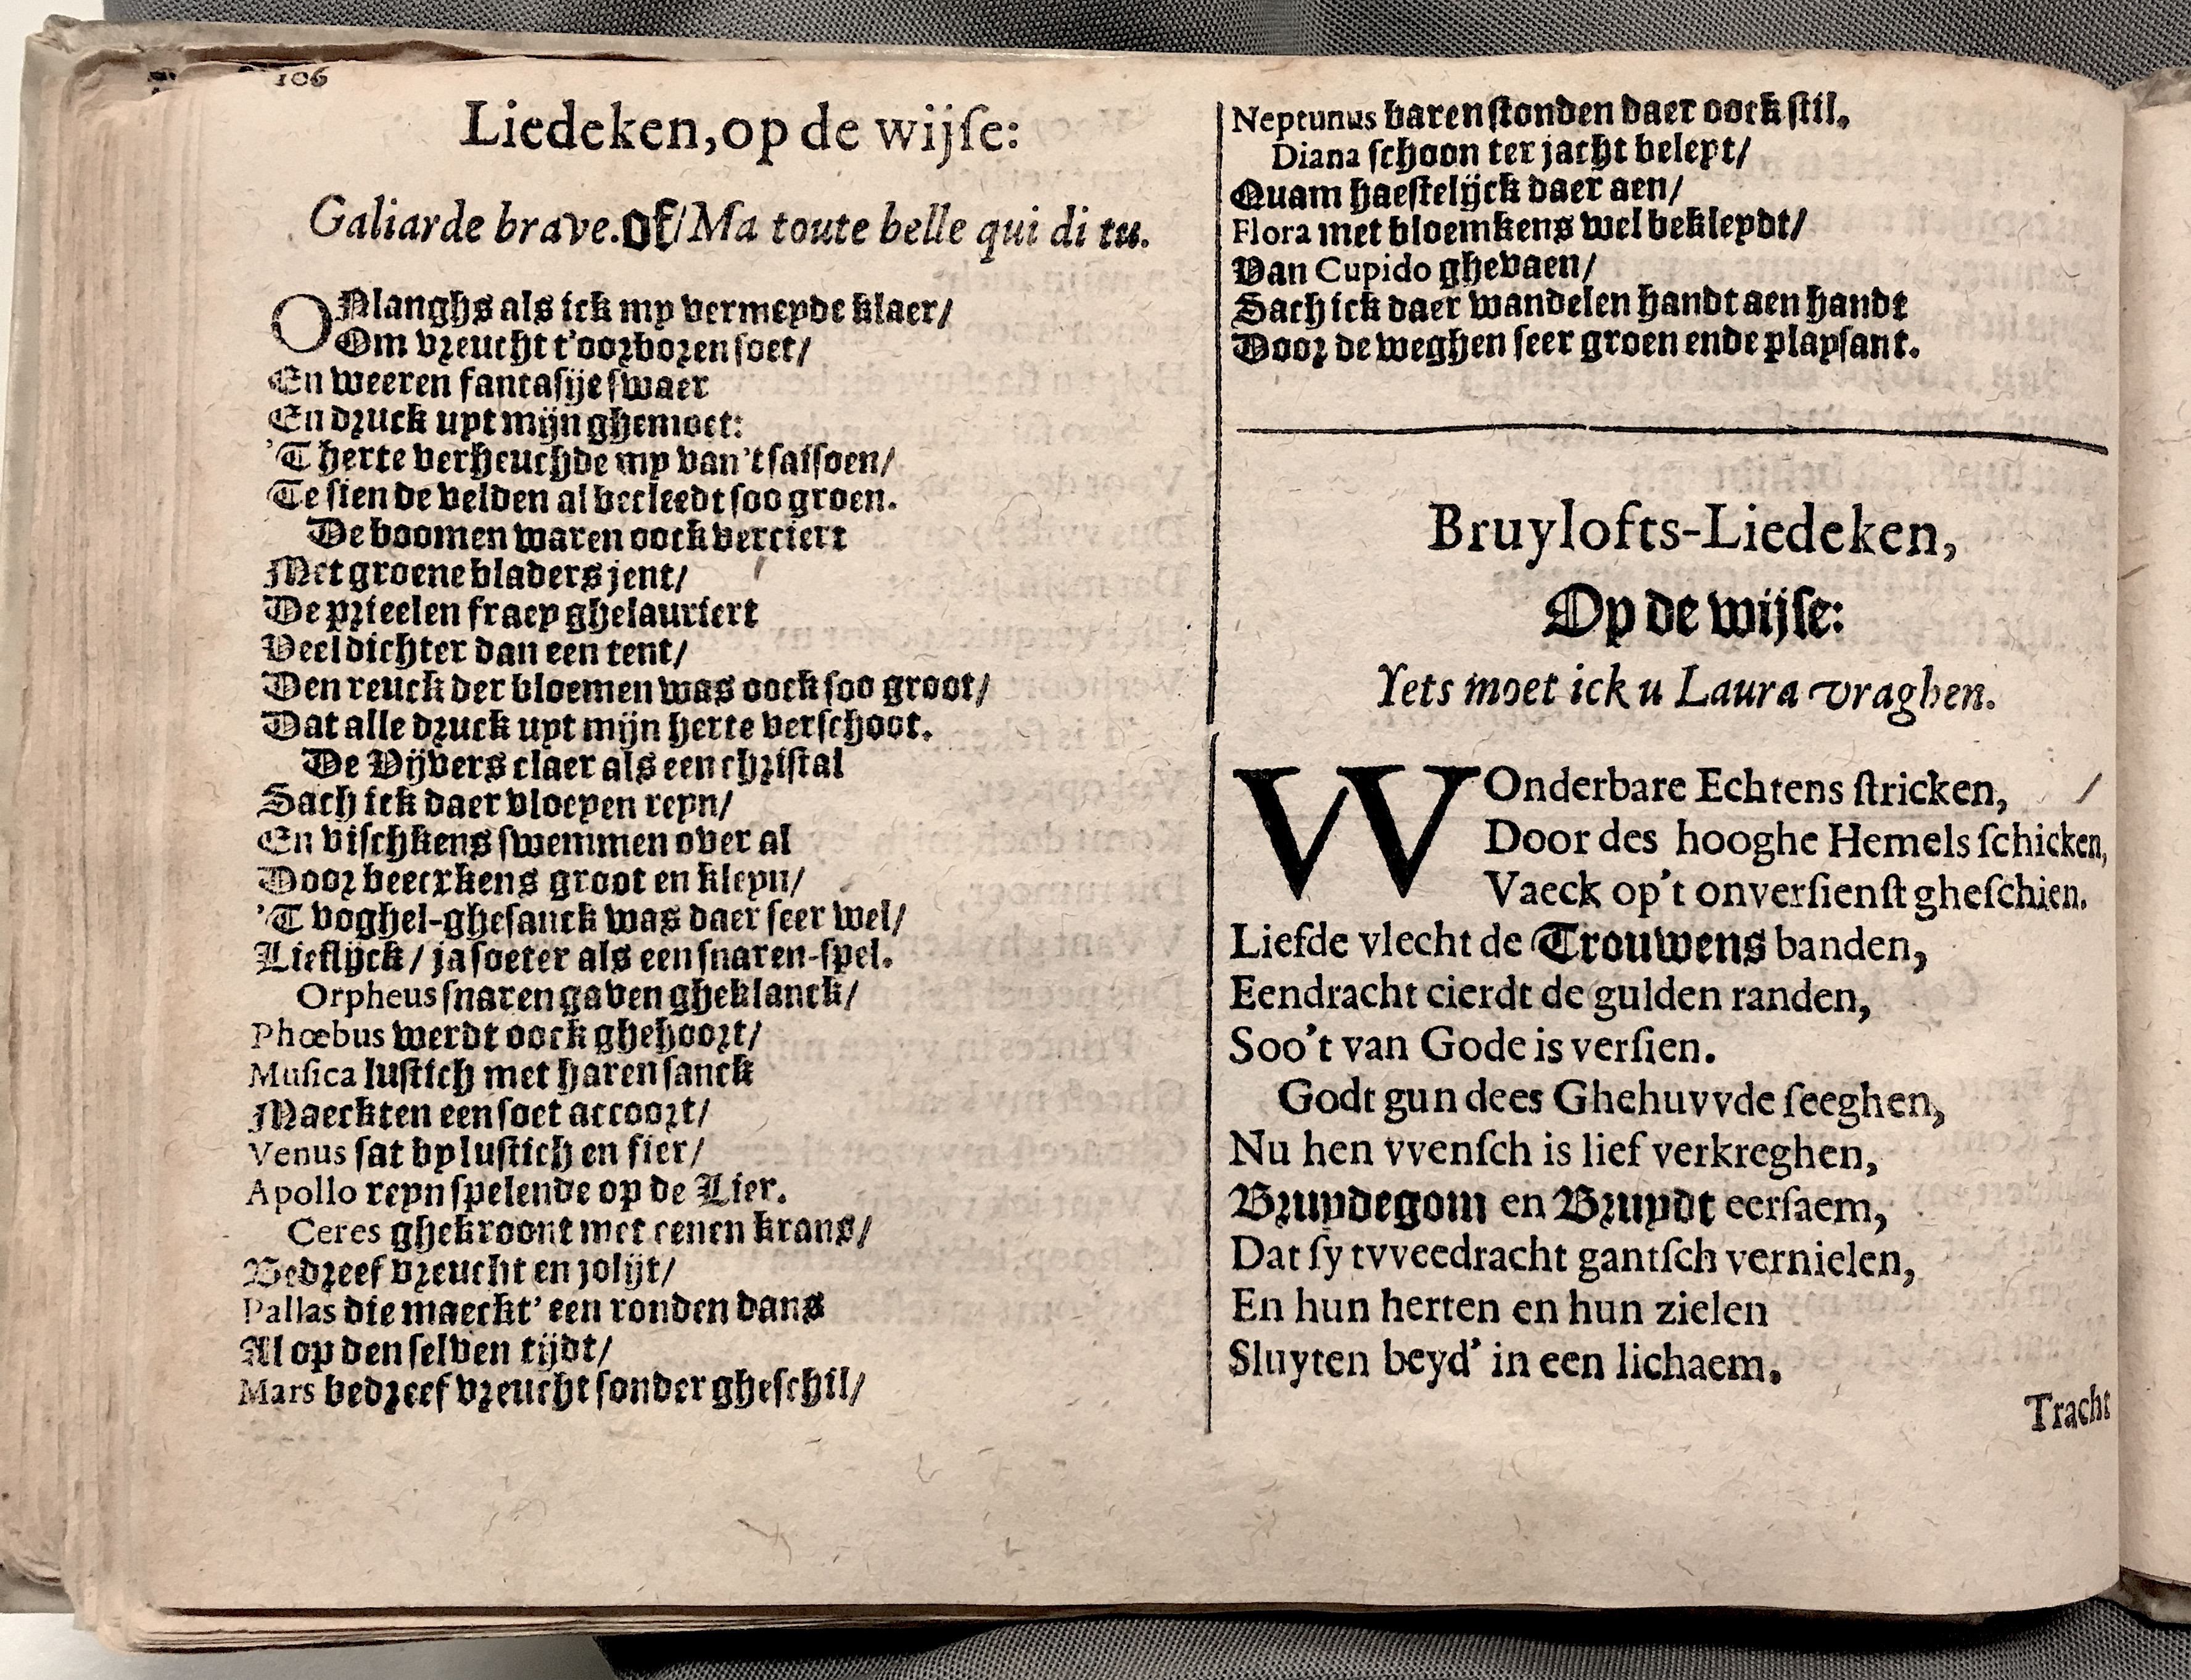 106
Liedeken, op de wijſe:
Galiarde brave. Of/ Ma toute belle qui di tu.
ONlanghs als ick my vermeyde klaer/
Om vreucht t'oorboren ſoet/
En weeren fantaſije ſwaer
En druck uyt mijn ghemoet:
'T herte verheuchde my van 't ſaiſoen/
Te ſien de velden al becleedt ſoo groen.
De boomen waren oock verciert
Met groene bladers jent/
De prieelen fraey ghelauriert
Veel dichter dan een tent/
Den reuck der bloemen was oock ſoo groot/
Dat alle druck uyt mijn herte verſchoot.
De Vijvers claer als een chriſtal
Sach ick daer vloeyen reyn/
En viſchkens ſwemmen over al
Door beeckens groot en kleyn/
'T voghel-gheſanck was daer ſeer wel/
Lieflijck/ ja ſoeter als een ſnaren-ſpel.
Orpheus ſnaren gaven gheklanck/
Phœbus werdt oock ghehoort/
Muſica luſtich met haren ſanck
Maeckten een ſoet accoort/
Venus ſat by luſtich en fier/
Apollo reyn ſpelende op de Lier.
Ceres ghekroont met eenen krans/
Bedreef vreucht en jolijt/
Pallas die maeckt' een ronden dans
Al op den ſelven tijdt/
Mars bedreef vreucht ſonder gheſchil/
Neptunus baren ſtonden daer oock ſtil.
Diana ſchoon ter jacht beleyt/
Quam haeſtelijck daer aen/
Flora met bloemkens wel bekleydt/
Van Cupido ghevaen/
Sach ick daer wandelen handt aen handt
Door de weghen ſeer groen ende playſant.
Bruylofts-Liedeken,
Op de wijſe:
Yets moet ick u Laura vraghen.
WOnderbare Echtens ſtricken,
Door des hooghe Hemels ſchicken,
Vaeck op't onverſienſt gheſchien.
Liefde vlecht de Trouwens banden,
Eendracht cierdt de gulden randen,
Soo't van Gode is verſien.
Godt gun dees Ghehuvvde ſeeghen,
Nu hen vvenſch is lief verkreghen,
Bruydegom en Bruydt eerſaem,
Dat ſy tvveedracht gantſch vernielen,
En hun herten en hun zielen
Sluyten beyd' in een lichaem.
Tracht